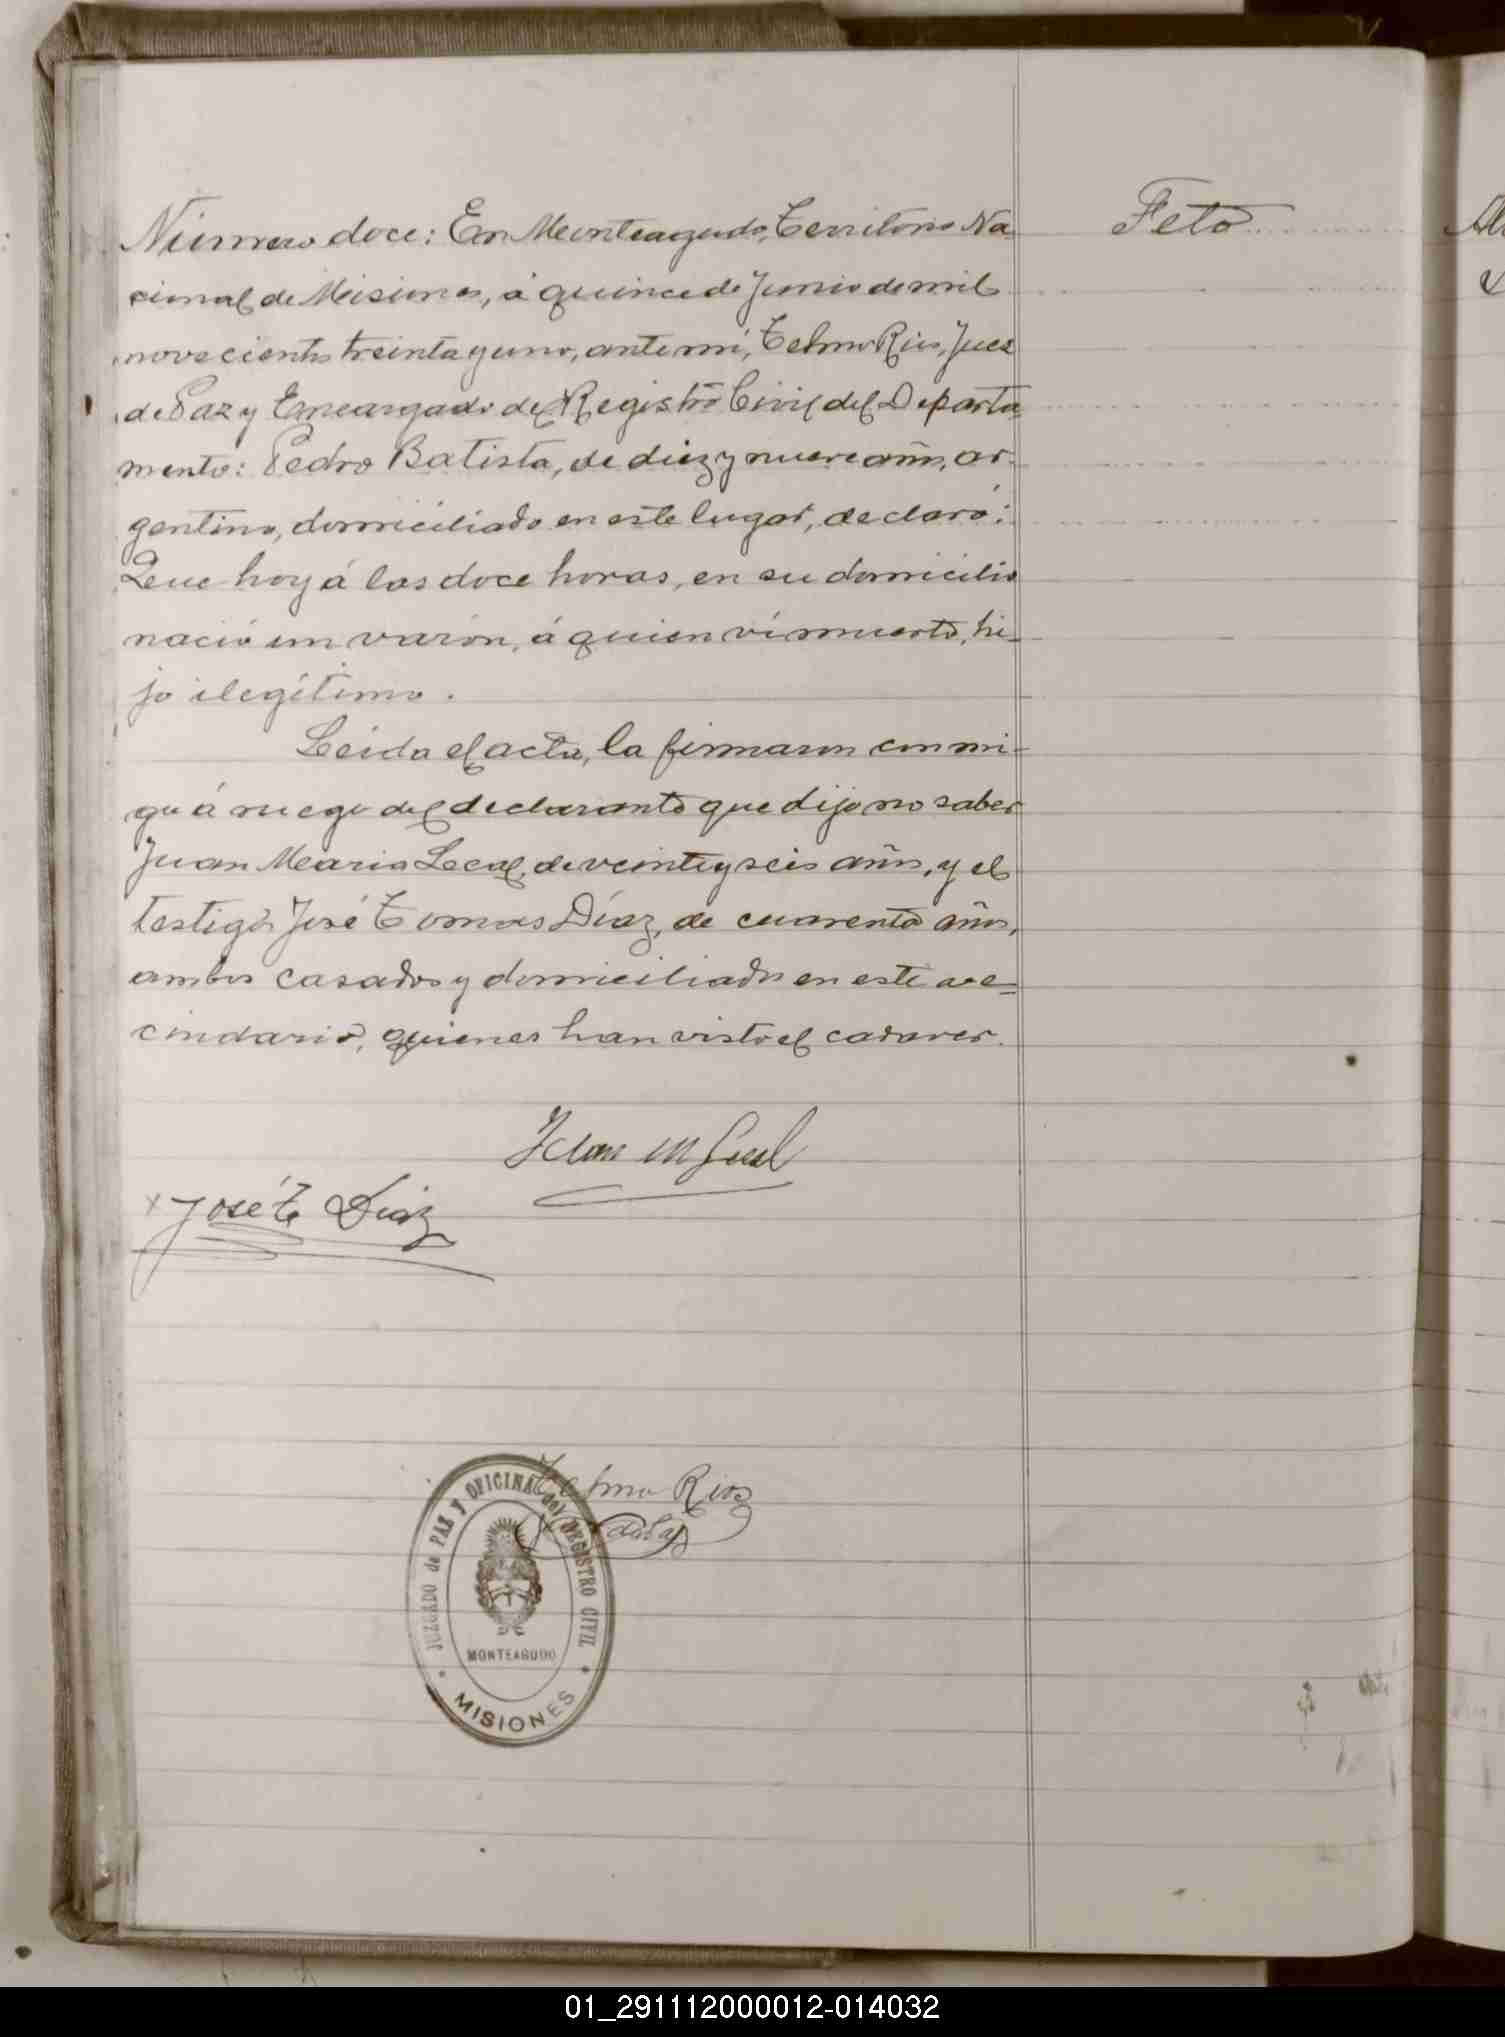 Número doce: En Monteagudo, Territorio Na-
cional de Misiones, á quince de Junio de mil
novecientos treinta y uno, ante mi, Telmo Rios, Juez
de Paz y Encargado del Registro Civil del Departa-
mento: Pedro Batista, de diez y nueve años, ar-
gentino, domiciliado en este lugar, declaró:
Que hoy á las doce horas, en su domicilio
nació un varón, á quien ví muerto, hi-
jo ilegítimo.
Leida el acta, la firmaron conmi-
go á ruego del declarante que dijo no saber
Juan Maria Leal, de veinte y seis años, y el
testigo José Tomas Díaz, de cuarenta años,
ambos casados y domiciliados en este ve-
cindario, quienes han visto el cadaver.
Feto
Juan M Leal
x José T Diaz
Telmo Rios
Juez de Paz
JUZGADO de PAZ Y OFICINA del REGISTRO CIVIL
MONTEAGUDO
MISIONES
01_291112000012-014032